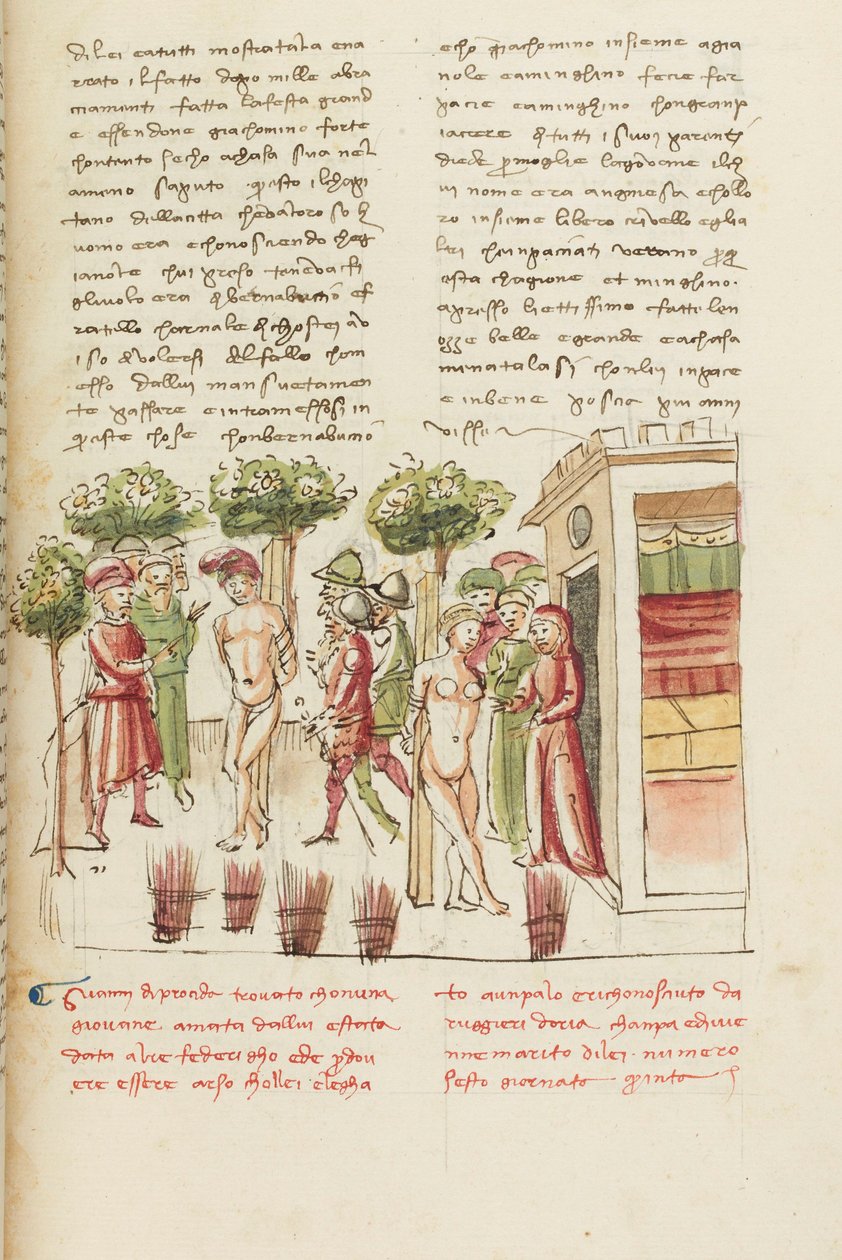 di lei e a tutti mostratala e na
rrato il fatto dopo mille abra
cciamenti fatta la festa grand
e essendone giachomino forte
chontento secho a chasa sua nel
ameno saputo questo il chapi
tano della citta che
uomo era e chonosciendo cheg
ianole chui preso teneva fi
gliuolo era di bernabuccio e f
ratello charnale di chostei av
iso di volersi del fallo chom
esso dallui mansuetamen
te passare e intramessosi in
queste chose chonbernabuccio
echo giachomino insieme a gia
nole e a minghino fecie far
pacie e a minghino chon gran p
iacere di tutti i suoi parenti
diede per moglie la giovane il ch
ui nome era angniesa e chollo
ro insieme libero crivello e gli a
ltri che
esta chagione et minghino
apresso liettissimo fatte le n
ozze belle e grande e a chasa
menatalasi chon lui in pace
e in bene poscia piu anni
visse
Gianni di procida trovato chon una
giovane amata dallui e stata
data a lre federigho ede per dov
ere essere arso chollei e legha
to a un palo e richonosciuto da
ruggieri doria champa e divie
nne marito di lei numero
sesto giornata quinta